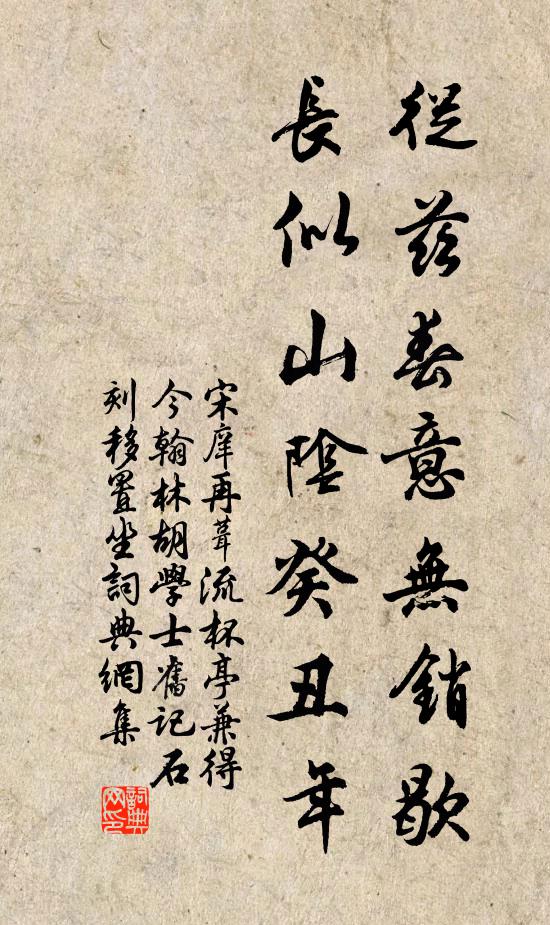 從茲春意無銷歇
長似山陰癸丑年
宋庠再葺流杯亭兼得
今翰林胡學士舊記石
刻移置坐詞典網集
詞典網印